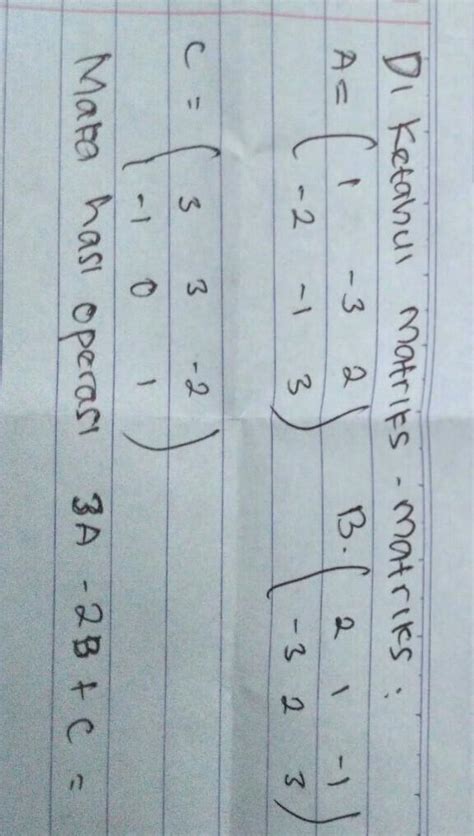 Di Ketahui matriks - matriks :
A = ( 1 -3 2 ) B. ( 2 1 -1 )
( -2 -1 3 ) ( -3 2 3 )
C = ( 3 3 -2 )
( -1 0 1 )
Maka hasi operasi 3A - 2B + C =